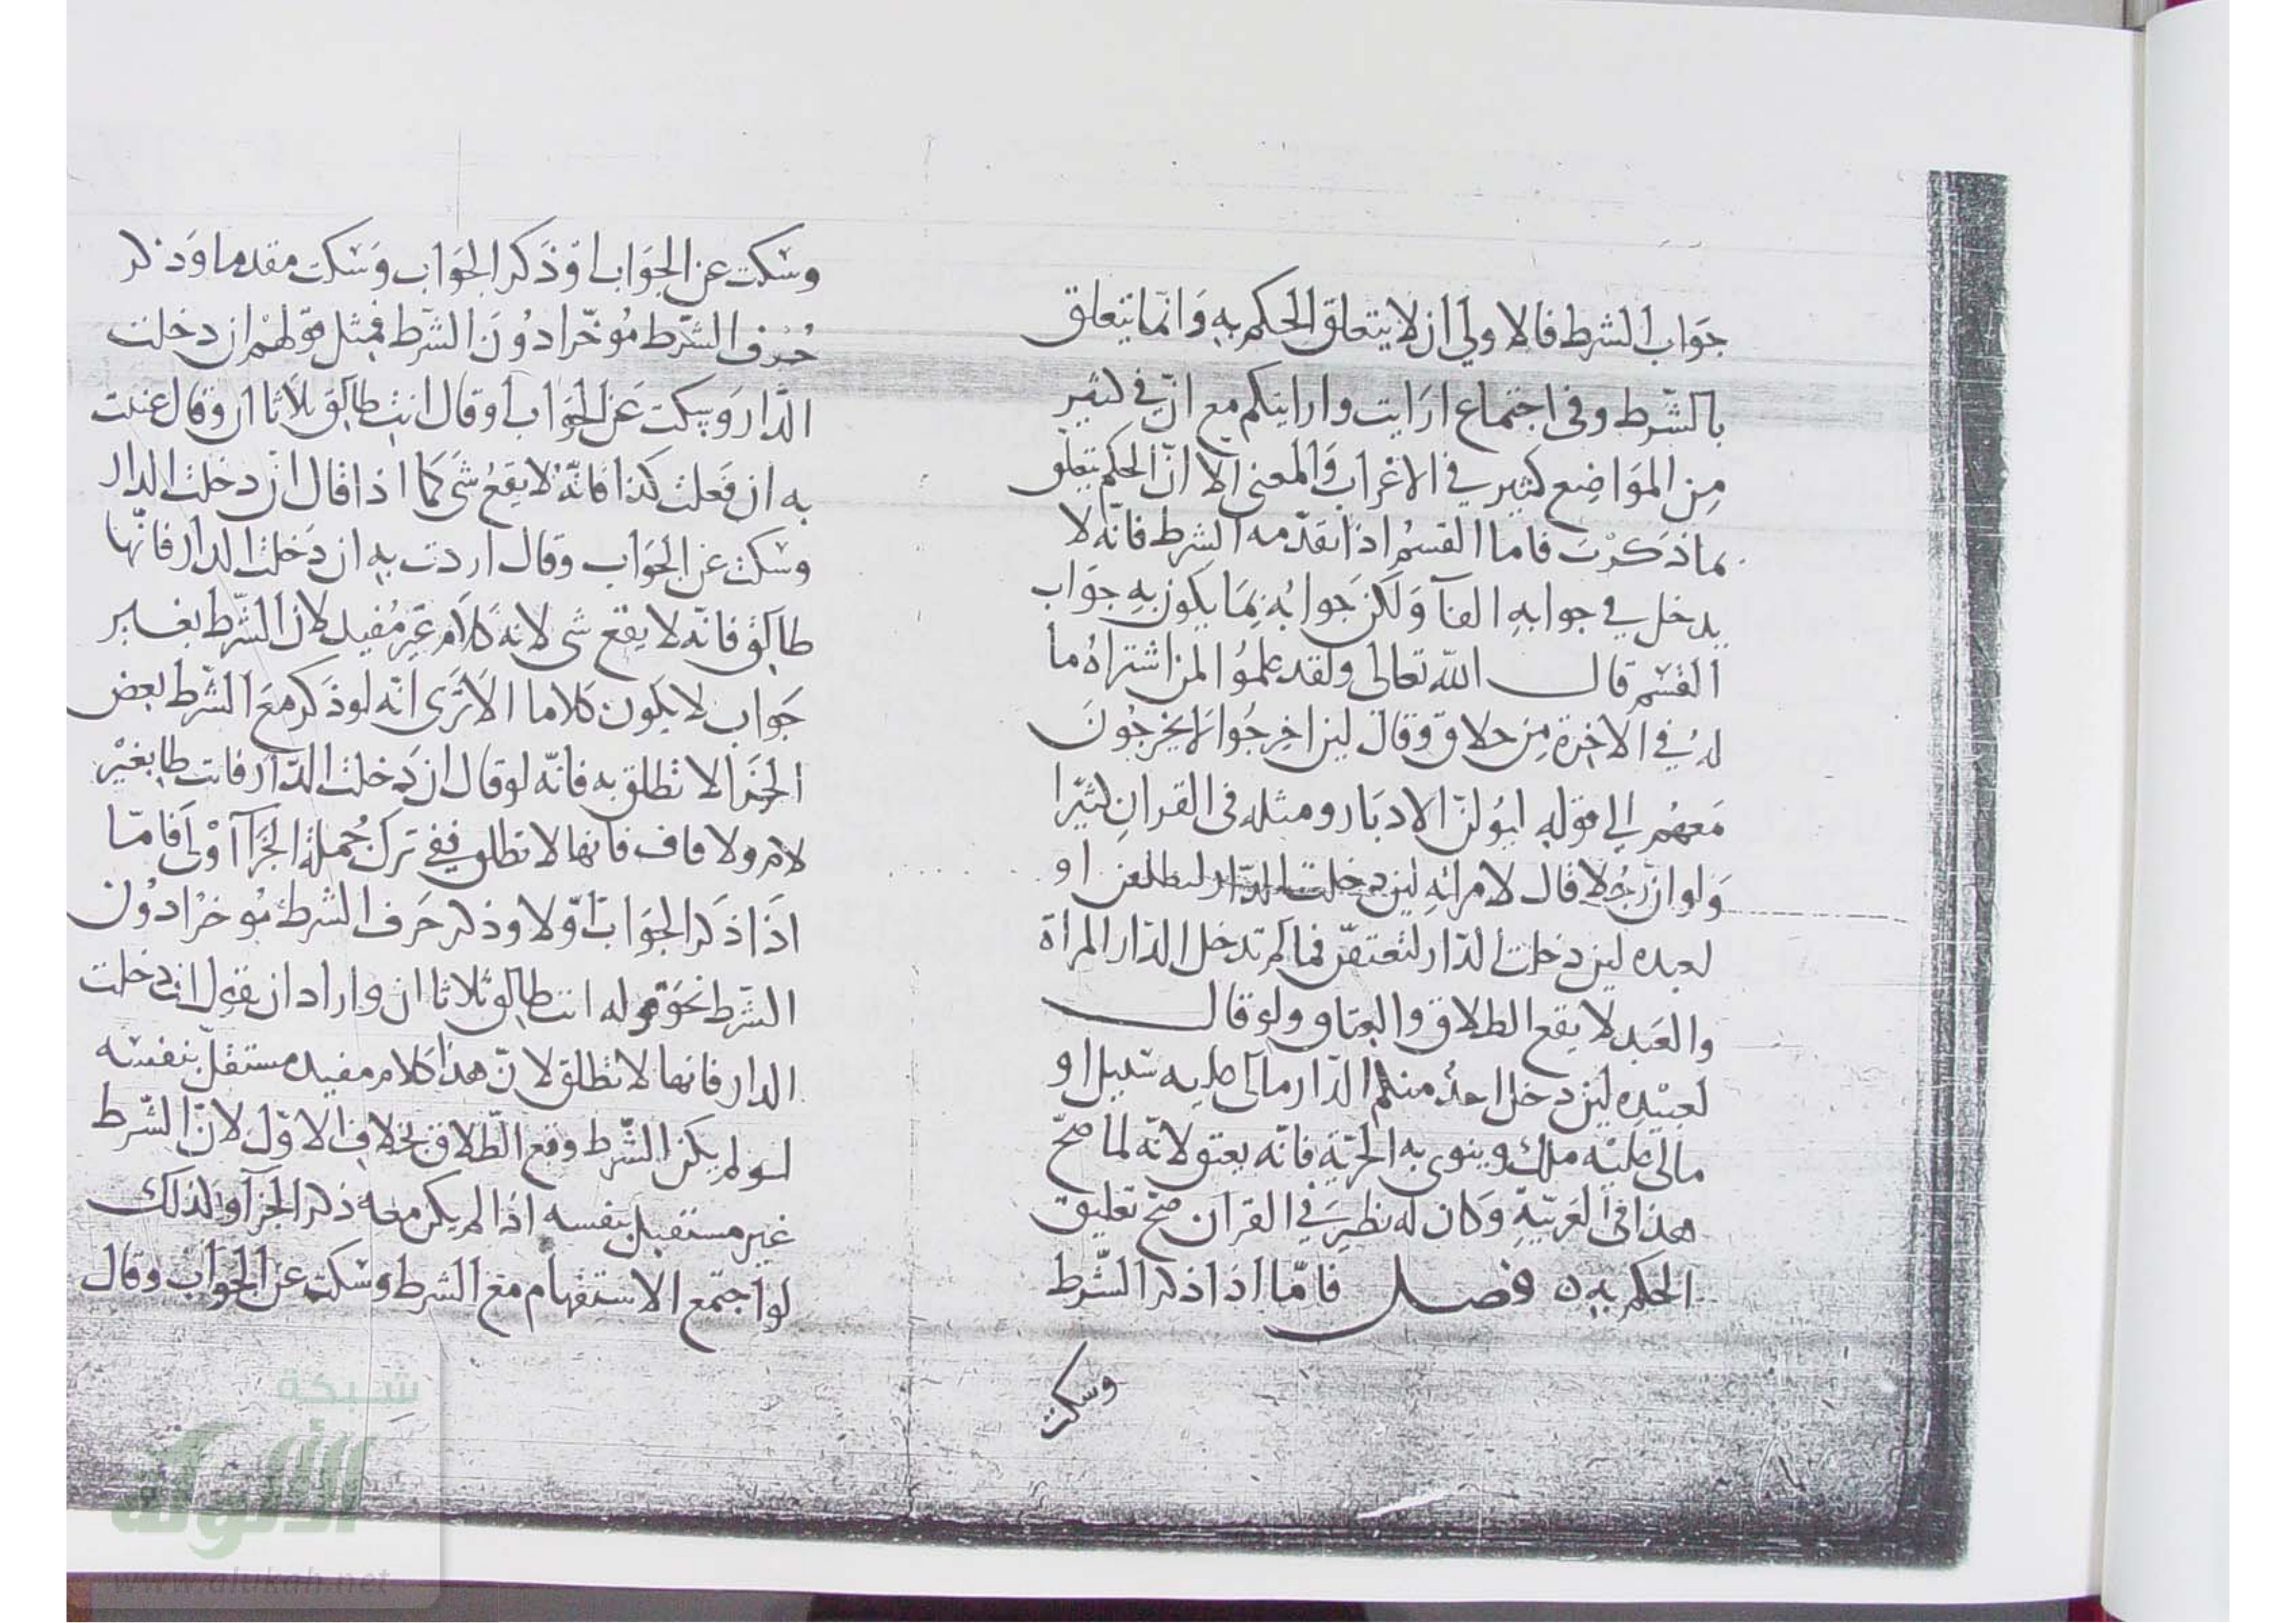 جَوَاب الشرط فالاولي ان لا يتعلق الحكم بهِ وَانمّا يتعلق
بالشّرط وفى اجتماع ارَايت وارايتكم مع انّ في كثير
مِن المَوَاضِع كثير في الاعْراب وَالمعنى الا انّ الحكم يتعلق
بما ذكَرْتَ فاما القسمُ اذا تقدّمه الشرط فانّه لا
يدخل في جوابهِ الفآ وَلكن جَوابُه بمَا يكون بهِ جوَاب
القسْم قال الله تعالى ولقد علموُا لمن اشتراهُ ما
لهُ في الاخِرة مِن خلاق وَقال لين اخِرجُوا لَا يخرجُونَ
مَعهُم الي قوله ليُولنّ الادبَار ومثله فى القرانِ كثيرًا
وَلو انّ رجُلا قال لامراتهِ لين دخلت الدّار لتطلقن او
لعبده لين دخلت الدّار لتعتقنّ فما لم تدخل الدّار المراة
والعَبد لا يقع الطلاق والعتاق ولو قال
لعبيْدِه لين دخل احدُ منكم الدّار مالى عليه سَبيل او
مالى عليْه ملك وينوى به الحرّية فانّه يعتق لانّه لما صحّ
هذا فى العَربيّةِ وَكان له نظيرَ في القران صَحّ تعليق
الحكم بهِ ه فصل فامّا اذا ذكر الشّرط
وسكت
وسَكت عن الجوَاب اوْ ذَكر الجوَاب وَسَكت مقدما وَذكر
حُرف الشّرط مُوخّرا دُونَ الشّرط فمِثل قولهمْ ان دخلت
الدّار وَسكت عَن الجوَاب اوقال انت طالق ثلاثا ان وقال عنيت
به ان فعلت كذا فانّه لا يقعُ شَى كما اذا قال ان دخلت الدار
وسكت عن الجوَاب وقال اردت بهِ ان دَخلت الدار فانّها
طالق فانّه لا يقع شى لانه كلام غير مُفيد لان الشّرط بغير
جوَاب لا يكون كلاما الا ترَى انّه لو ذكر معَ الشّرط بعض
الجزا لا تطلق به فانّه لو قال ان دَخلت الدّار فانت طا بغيْر
لام ولا قاف فانها لا تطلق ففي ترك جُملة الجزآ اوْلى فامّا
اذَا ذكر الجوَابَ اوّلا وذكر حَرف الشرط مُوخرًا دُون
الشّرط نحوَ قوله انت طالق ثلاثا ان واراد ان يقول ان دخلت
الدار فانها لا تطلق لانّ هذا كلام مفيد مستقلّ بنفسه
لو لم يكن الشّرط وقع الطّلاق بخلاف الاوّل لانّ الشّرط
غير مستقبل بنفسه اذا لم يكن معه ذكر الجزآ وكذلك
لو اجتمع الاستفهام مع الشرط وسَكت عن الجوَاب وقال
شبكة
الألوكة
www.alukah.net